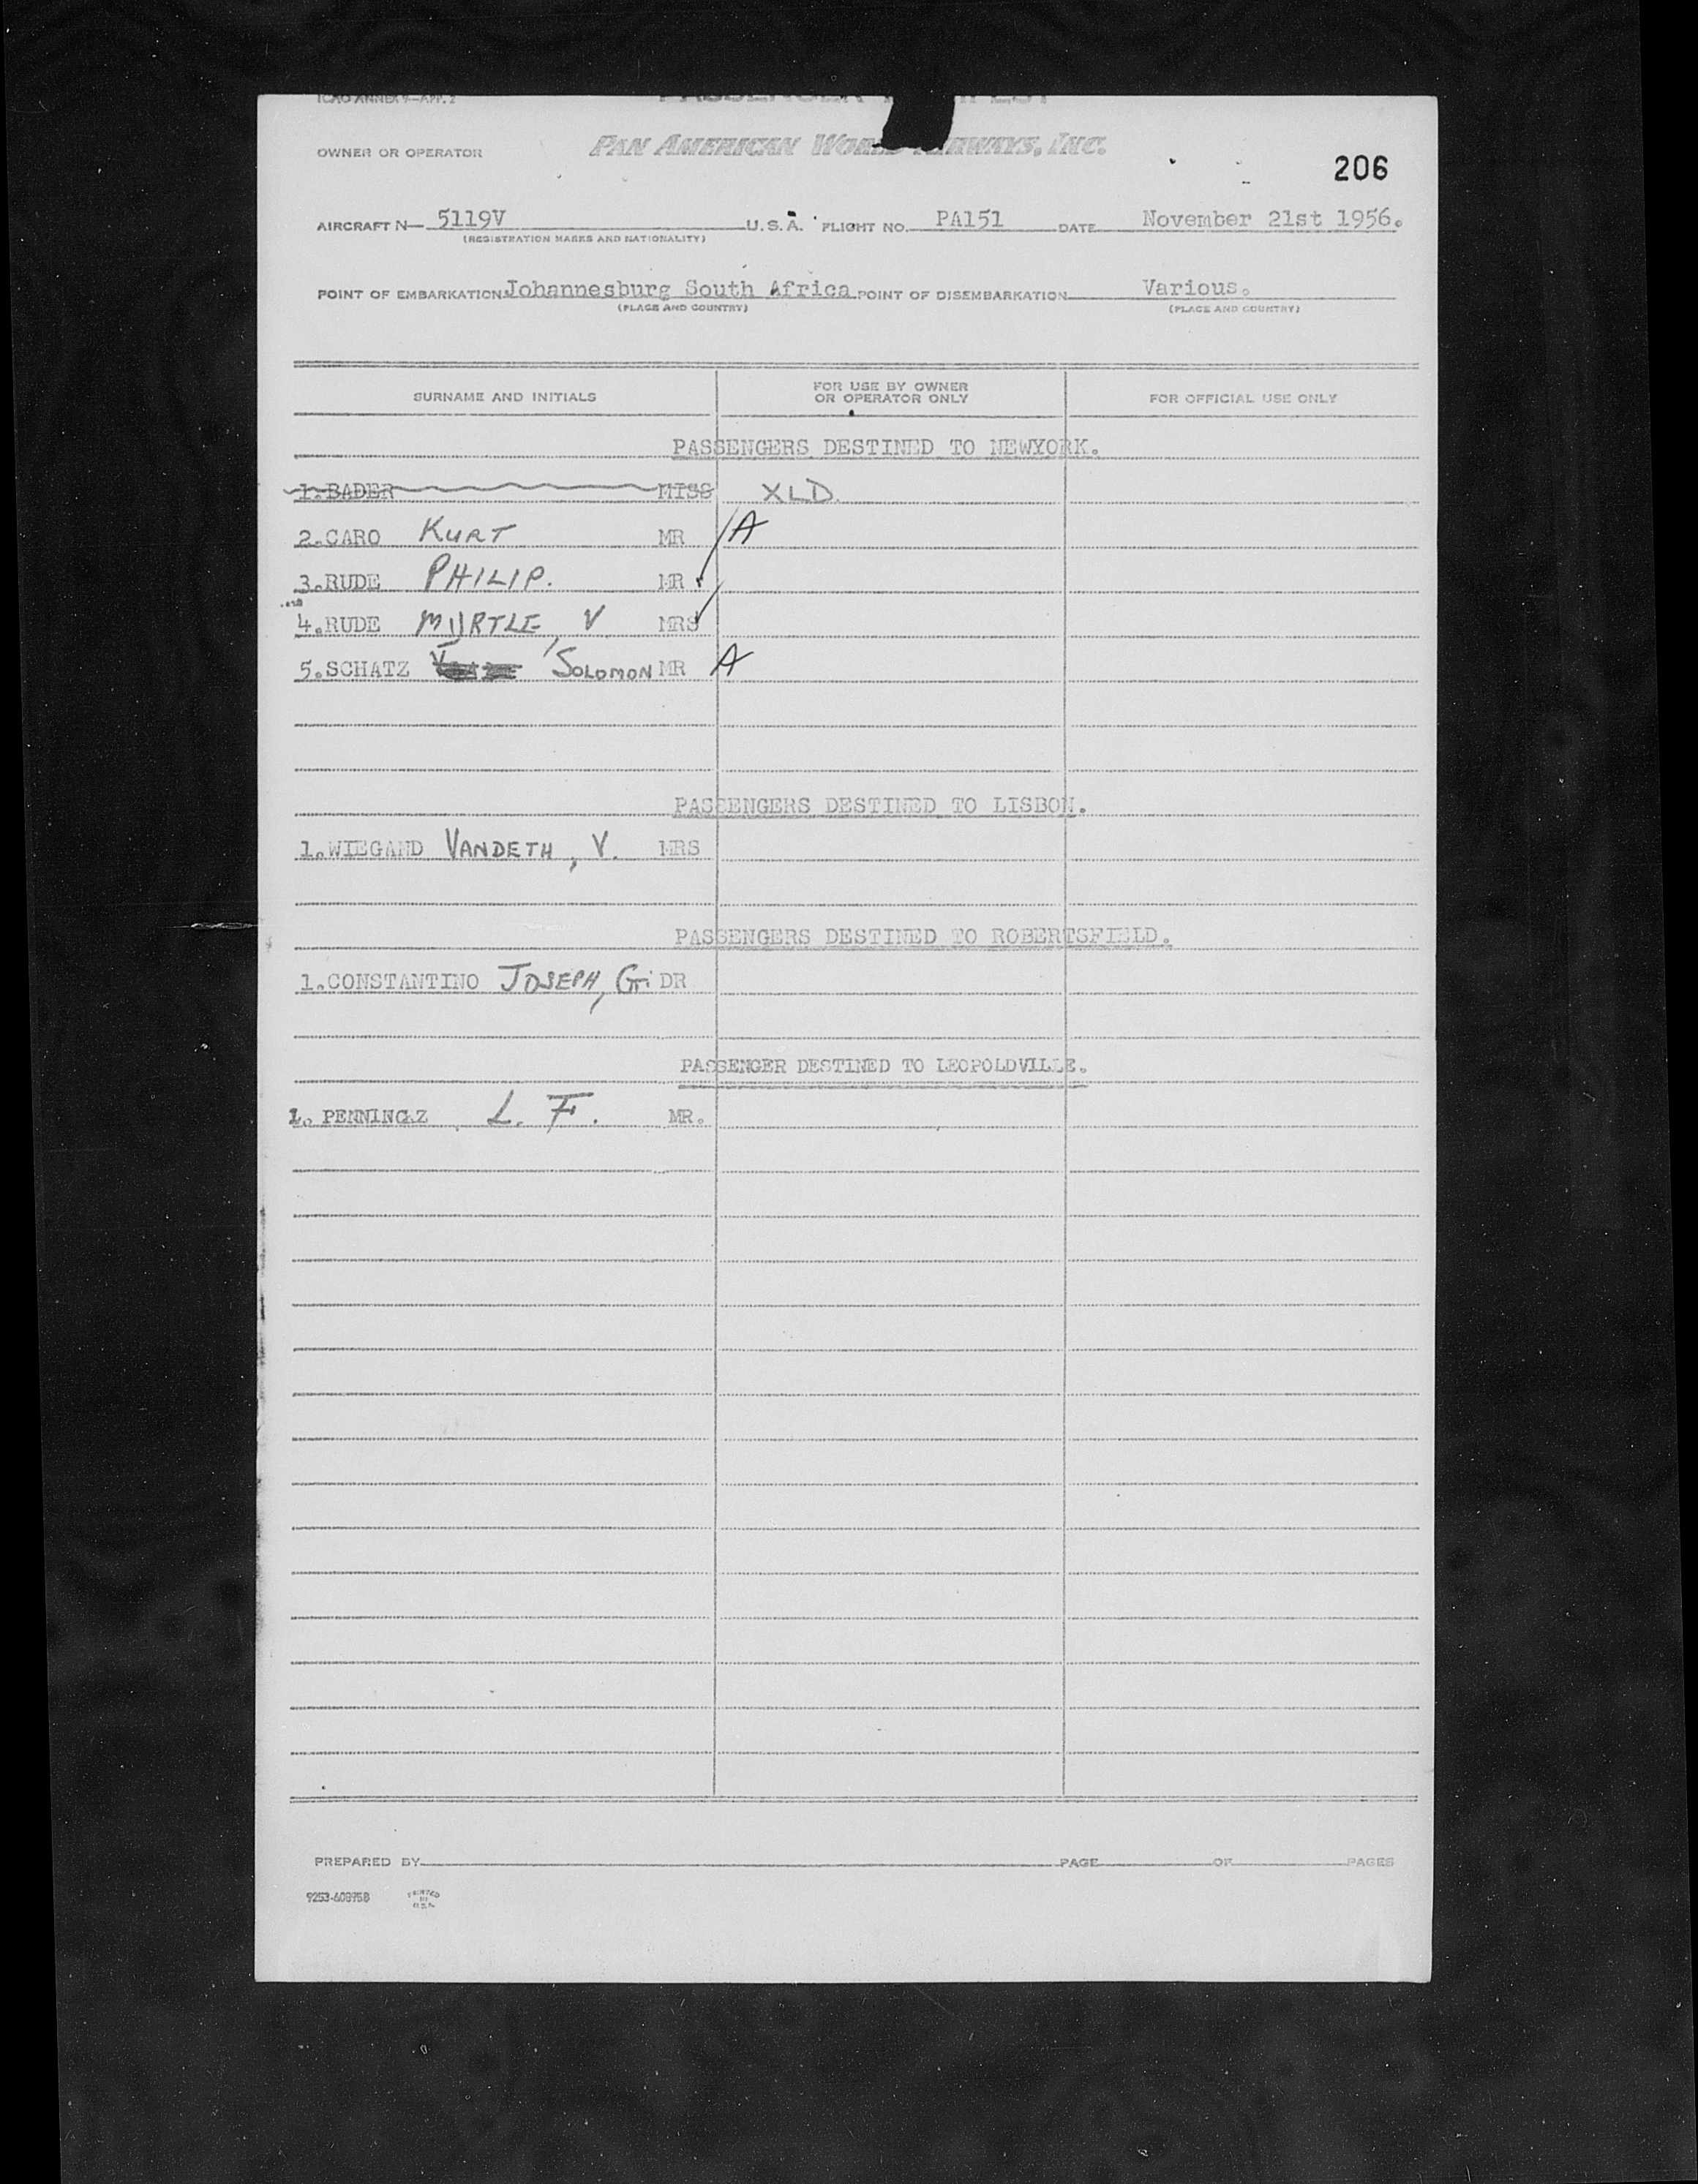 ICAO ANNEX 9—APP. 2
OWNER OR OPERATOR PAN AMERICAN WORLD AIRWAYS, INC.
206
AIRCRAFT N— 5119V U.S.A. FLIGHT NO. PA151 DATE November 21st 1956.
(REGISTRATION MARKS AND NATIONALITY)
POINT OF EMBARKATION Johannesburg South Africa POINT OF DISEMBARKATION Various.
(PLACE AND COUNTRY) (PLACE AND COUNTRY)
SURNAME AND INITIALS FOR USE BY OWNER OR OPERATOR ONLY FOR OFFICIAL USE ONLY
PASSENGERS DESTINED TO NEWYORK.
1.BADER MISS XLD.
2.CARO KURT MR A
3.RUDE PHILIP. MR
4.RUDE MYRTLE, V MRS
5.SCHATZ SOLOMON MR A
PASSENGERS DESTINED TO LISBON.
1.WIEGAND VANDETH, V. MRS
PASSENGERS DESTINED TO ROBERTSFIELD.
1.CONSTANTINO JOSEPH, G. DR
PASSENGER DESTINED TO LEOPOLDVILLE.
1. L. F. MR.
PREPARED BY PAGE OF PAGES
9253-60895B PRINTED IN U.S.A.